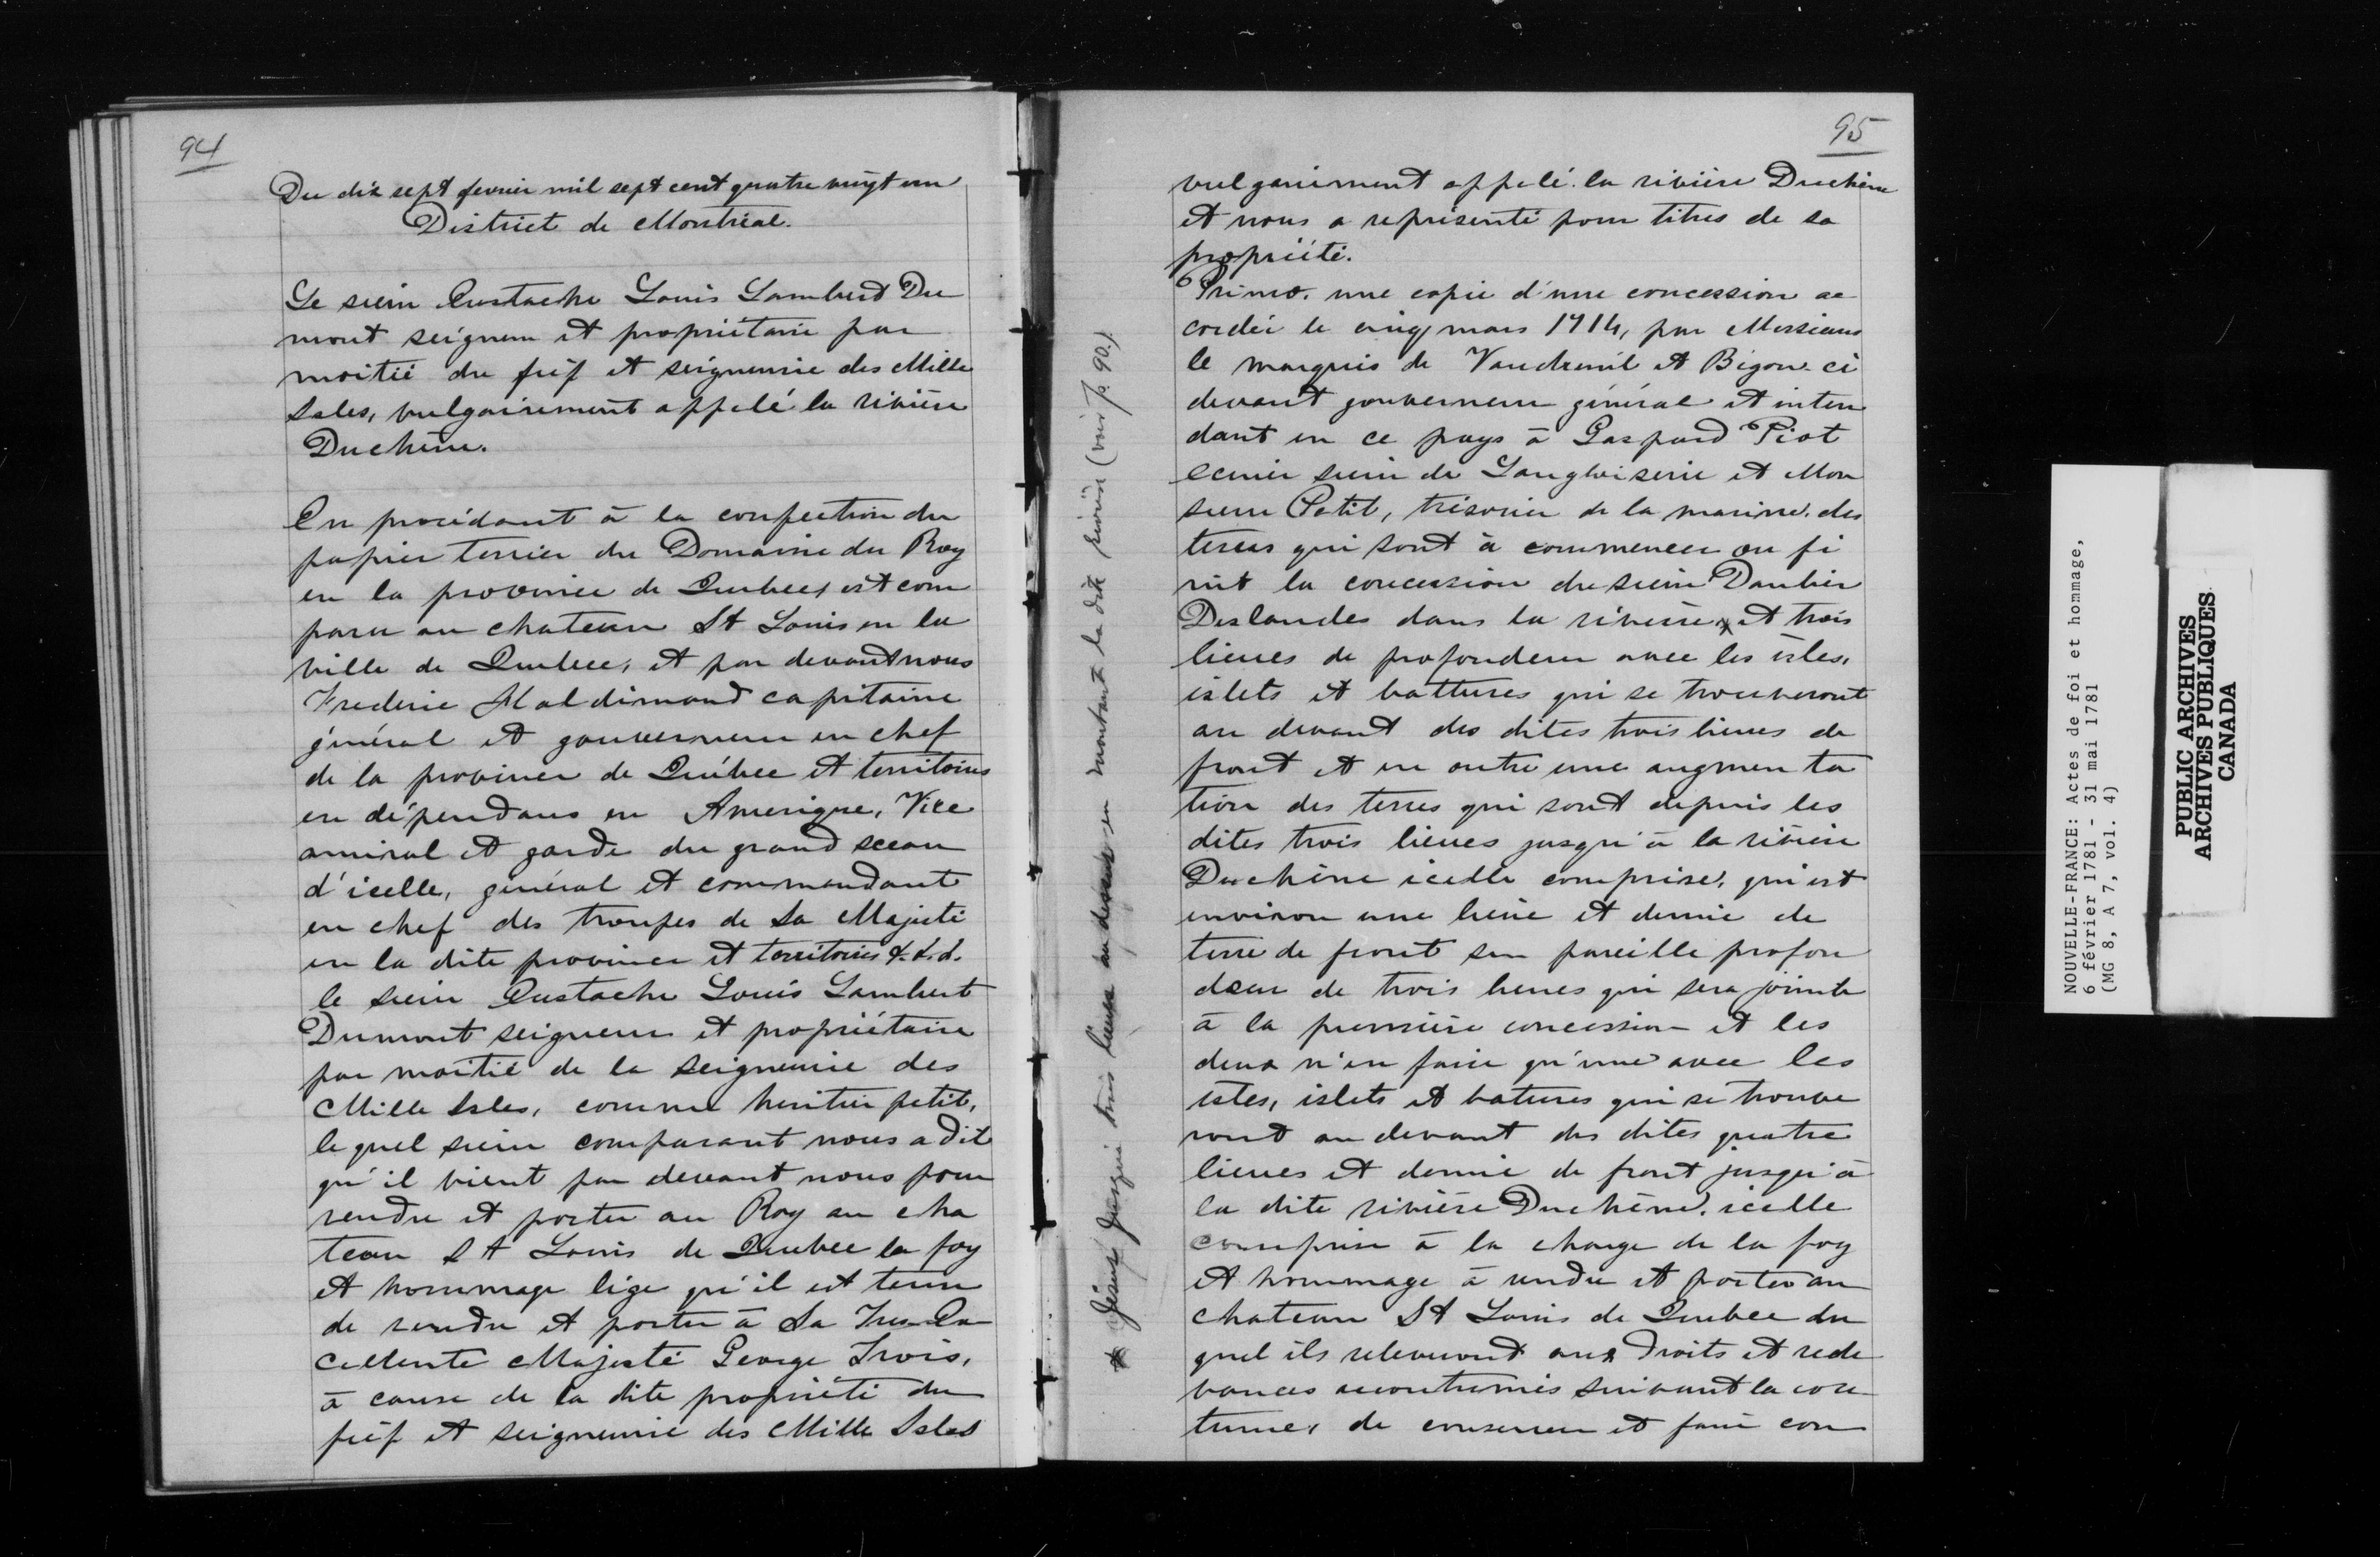 94
Du dix sept fevrier mil sept cent quatre vingt un
District de Montréal.
Le sieur Eustache Louis Lambert Du
mont seigneur et propriétaire par
moitié du fief et seigneurie des Mille
Isles, vulgairement appelé la rivière
Duchêne.
En procédant à la confection du
papier terrier du Domaine du Roy
en la province de Quebec, est com
paru au chateau St Louis en la
ville de Quebec, et par devant nous
Frederic Haldimand capitaine
général et gouverneur en chef
de la province de Québec et territoires
en dépendans en Amerique, Vice
amiral et garde du grand sceau
d'icelle, général et commandant
en chef des troupes de Sa Majesté
en la dite province et territoires &.&.&.
le sieur Eustache Louis Lambert
Dumont seigneur et propriétaire
par moitié de la seigneurie des
Mille Isles, comme heritier petit,
le quel sieur comparant nous a dit
qu'il vient par devant nous pour
rendre et porter au Roy au cha
teau St Louis de Quebec la foy
et hommage lige qu'il est tenu
de rendre et porter à Sa Tres Ex
cellente Majesté George Trois,
à cause de la dite propriété du
fief et seigneurie des Mille Isles
95
vulgairement appelé la rivière Duchêne
et nous a représenté pour titres de sa
propriété.
Primo. une copie d'une concession ac
cordée le cinq mars 1714, par Messieurs
le marquis de Vaudreuil et Bigon ci
devant gouverneur général et inten
dant en ce pays à Gaspard Piot
ecuier sieur de Langloiserie et Mon
sieur Petit, trésorier de la marine, des
terres qui sont à commencer ou fi
nit la concession du sieur Daulier
Deslandes dans la rivière x et trois
lieues de profondeur avec les isles,
islets et battures qui se trouveront
au devant des dites trois lieues de
front et en outre une augmenta
tion des terres qui sont depuis les
dites trois lieues jusqu'à la rivière
Duchêne icelle comprise, qui est
environ une lieue et demie de
terre de front sur pareille profon
deur de trois lieues qui sera jointe
à la première concession et les
deux n'en faire qu'une avec les
isles, islets et batures qui se trouve
ront au devant des dites quatre
lieues et demie de front jusqu'à
la dite rivière Duchêne, icelle
comprise à la charge de la foy
et hommage à rendre et porter au
chateau St Louis de Quebec du
quel ils releveront aux droits et rede
vances accoutumés suivant la cou
tume, de conserver et faire con
x Jésus jusqu'à trois lieues au dessus en montant la dite rivière (voir p. 90.)
NOUVELLE-FRANCE: Actes de foi et hommage,
6 février 1781 - 31 mai 1781
(MG 8, A 7, vol. 4)
PUBLIC ARCHIVES
ARCHIVES PUBLIQUES
CANADA